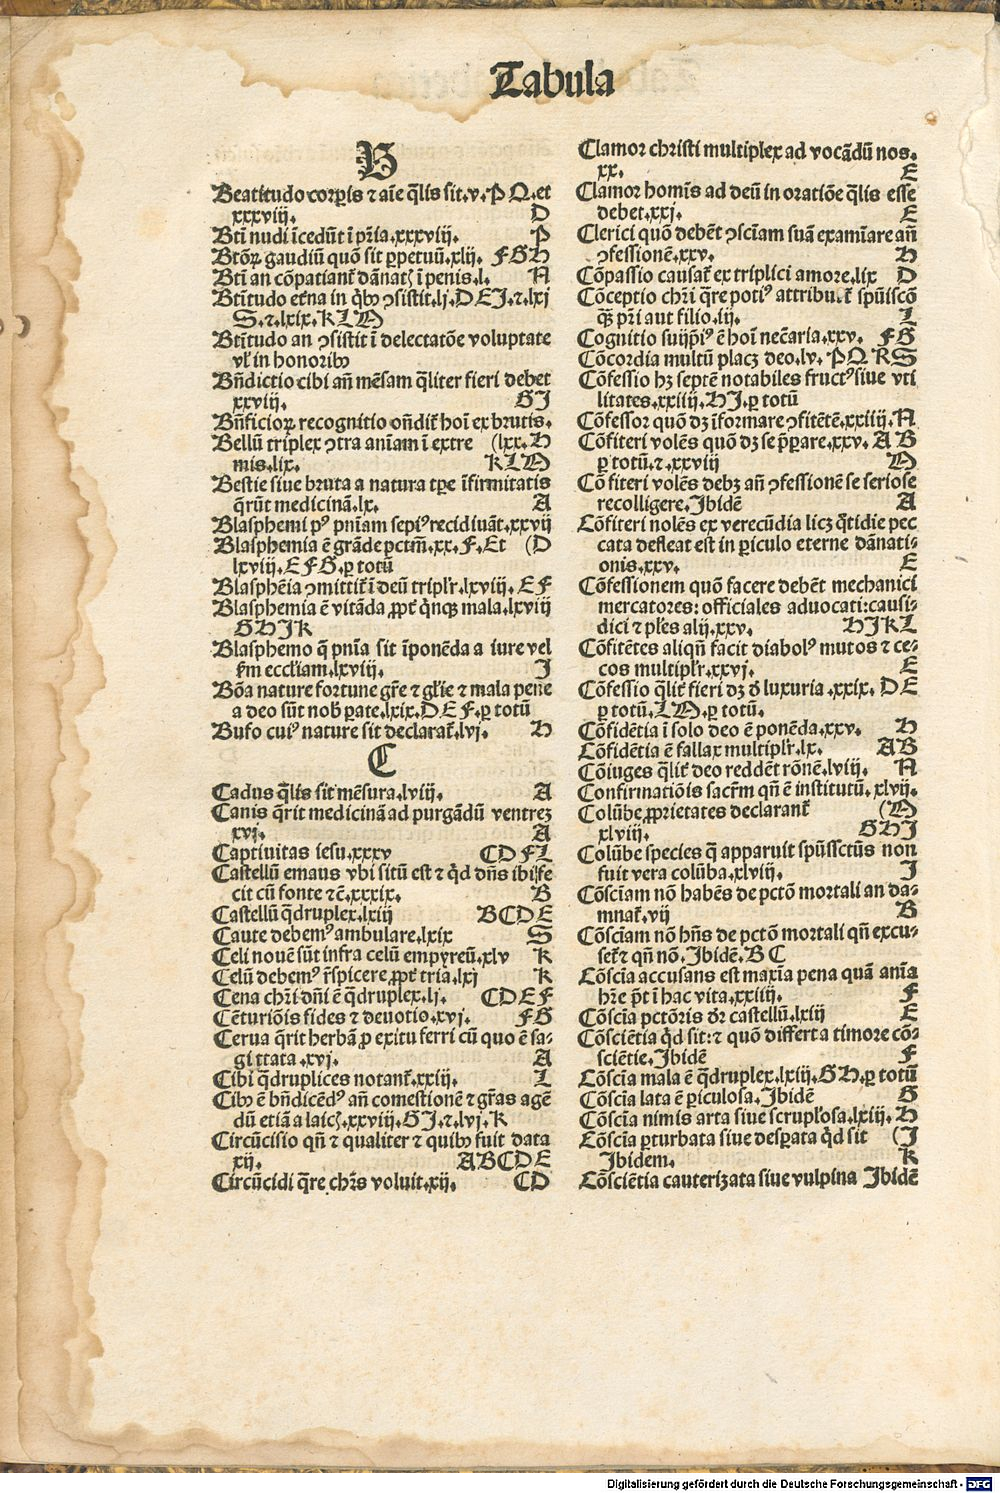 Tabula
B
Beatitudo corꝑis ⁊ aīe q̄lis sit.v.P Q.et
xxxviij. D
Btī nudi īcedūt ī pr̄ia.xxxviij. P
Btōꝝ gaudiū quō sit ꝑpetuū.xlij. F G H
Btī an cōpatiant̄ dānatꝭ ī penis.l. N
Btītudo et̄na in q̄bꝰ ꝯsistit.lj.D E J.⁊.lxj
S.⁊.lxix.K L M
Btītudo an ꝯsistit ī delectatōe voluptate
vl̓ in honoribꝰ
Bn̄dictio cibi an̄ mēsam q̄liter fieri debet
xxviij. G J
Bn̄ficioꝝ recognitio on̄dit̄ hoī ex brutis.
Bellū triplex ꝯtra anīam ī extre (lxx.H
mis.lix. K L M
Bestie siue bruta a natura tꝑe īfirmitatis
q̄rūt medicinā.lx. A
Blasphemi pꝰ pnīam sepiꝰ recidiuāt.xxvij
Blasphemia ē grāde pctm̄.xx.F.Et (D
lxviij.E F G.ꝑ totū
Blasphēia ꝯmittit̄ ī deū triplr̄.lxviij. E F
Blasphemia ē vitāda ꝓpt̄ q̄nqꝫ mala.lxviij
G H J K
Blasphemo q̄ pnīa sit īponēda a iure vel
ẜm eccl̓iam.lxviij. J
Bōa nature fortune gr̄e ⁊ gl̓ie ⁊ mala pene
a deo sūt nob̓ ꝑate.lxix.D E F.ꝑ totū
Bufo cuiꝰ nature sit declarat̄.lvj. H
C
Cadus q̄lis sit mēsura.lviij. A
Canis q̄rit medicinā ad purgādū ventreꝫ
xvj. A
Captiuitas iesu.xxxv C D F L
Castellū emaus vbi sitū est ⁊ q̄d dn̄s ibi fe
cit cū fonte ⁊c̄.xxxix. B
Castellū q̄druplex.lxiij B C D E
Caute debemꝰ ambulare.lxix S
Celi nouē sūt infra celū empyreū.xlv K
Celū debemꝰ r̄spicere ꝓpt̄ tria.lxj K
Cena chr̄i dn̄i ē q̄druplex.lj. C D E F
Cēturiōis fides ⁊ deuotio.xvj. F G
Cerua q̄rit herbā ꝓ exitu ferri cū quo ē sa⸗
gittata.xvj. A
Cibi q̄druplices notant̄.xxiij. L
Cibꝰ ē bn̄dicēdꝰ an̄ comestionē ⁊ gr̄as agē
dū etiā a laicꝭ.xxviij.G J.⁊.lvj.K
Circūcisio qn̄ ⁊ qualiter ⁊ quibꝰ fuit data
xij. A B C D E
Circūcidi q̄re chr̄s voluit.xij. C D
Clamor christi multiplex ad vocādū nos.
xx. E
Clamor homīs ad deū in oratiōe q̄lis esse
debet.xxj. E
Clerici quō debēt ꝯscīam suā examīare an̄
ꝯfessionē.xxv. H
Cōpassio causat̄ ex triplici amore.lix D
Cōceptio chr̄i q̄re potiꝰ attribuit̄ spūiscō
qꝫ pr̄i aut filio.iij. I
Cognitio suijpīꝰ ē hoī necr̄aria.xxv. F G
Cōcordia multū placꝫ deo.lv. P Q R S
Cōfessio hꝫ septē notabiles fructꝰ siue vti
litates.xxiiij.H J.ꝑ totū
Cōfessor quō dꝫ īformare ꝯfitētē.xxiiij.N
Cōfiteri volēs quō dꝫ se p̄ꝑare.xxv. A B
ꝑ totū.⁊.xxviij M
Cōfiteri volēs debꝫ an̄ ꝯfessionē se seriose
recolligere.Ibidē A
Cōfiteri nolēs ex verecūdia licꝫ q̄tidie pec
cata defleat est in ꝑiculo eterne dānati⸗
onis.xxv. E
Cōfessionem quō facere debēt mechanici
mercatores: officiales aduocati:causi⸗
dici ⁊ pl̓es alij.xxv. H J K L
Cōfitētes aliqn̄ facit diabolꝰ mutos ⁊ ce⸗
cos multiplr̄.xxvj. E
Cōfessio q̄lit̄ fieri dꝫ d̓ luxuria.xxix. D E
ꝑ totū.L M.ꝑ totū.
Cōfidētia ī solo deo ē ponēda.xxv. H
Cōfidētia ē fallax multiplr̄.lx. A B
Cōiuges q̄lit̄ deo reddēt rōnē.lviij. N
Confirmatiōis sacrm̄ qn̄ ē institutū.xlvij.
Colūbe ꝓprietates declarant̄ (M
xlviij. G H J
Colūbe species q̄ apparuit spūssctūs non
fuit vera colūba.xlviij. J
Cōscīam nō habēs de pctō mortali an da⸗
mnat̄.vij B
Cōscīam nō hn̄s de pctō mortali qn̄ excu⸗
set̄ ⁊ qn̄ nō.Ibidē.B C
Cōscīa accusans est maxīa pena quā anīa
hr̄e pōt ī hac vita.xxiiij. F
Cōscīa pctōris dr̄ castellū.lxiij E
Cōsciētia q̄d sit:⁊ quō differt a timore cō⸗
sciētie.Ibidē F
Cōscīa mala ē q̄druplex.lxiij.G H.ꝑ totū
Cōscīa lata ē ꝑiculosa.Ibidē G
Cōscīa nimis arta siue scrupl̓osa.lxiij. H
Cōscīa ꝑturbata siue desꝑata q̄d sit (J
Ibidem. K
Cōsciētia cauterizata siue vulpina Ibidē
Digitalisierung gefördert durch die Deutsche Forschungsgemeinschaft - DFG